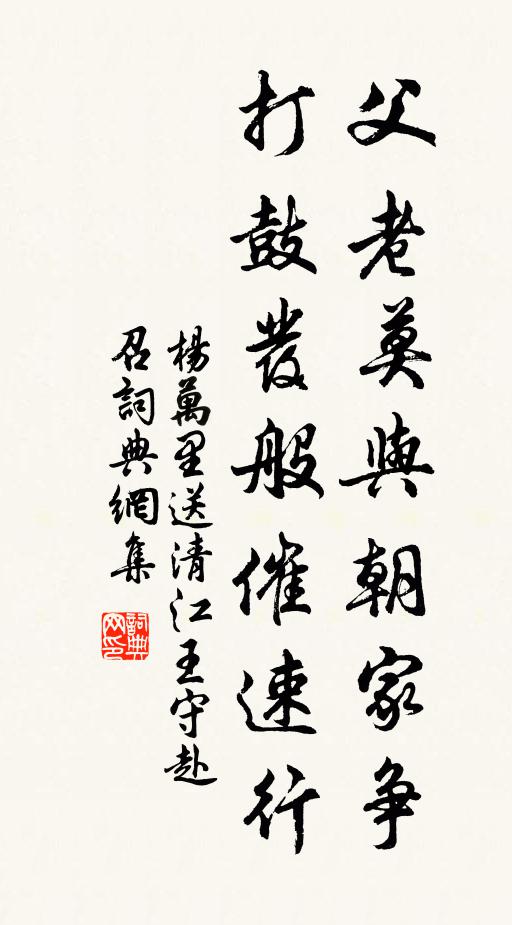 父老莫與朝家争
打鼓發般催速行
楊萬里送清江王守赴
召詞典網集
詞典
网印